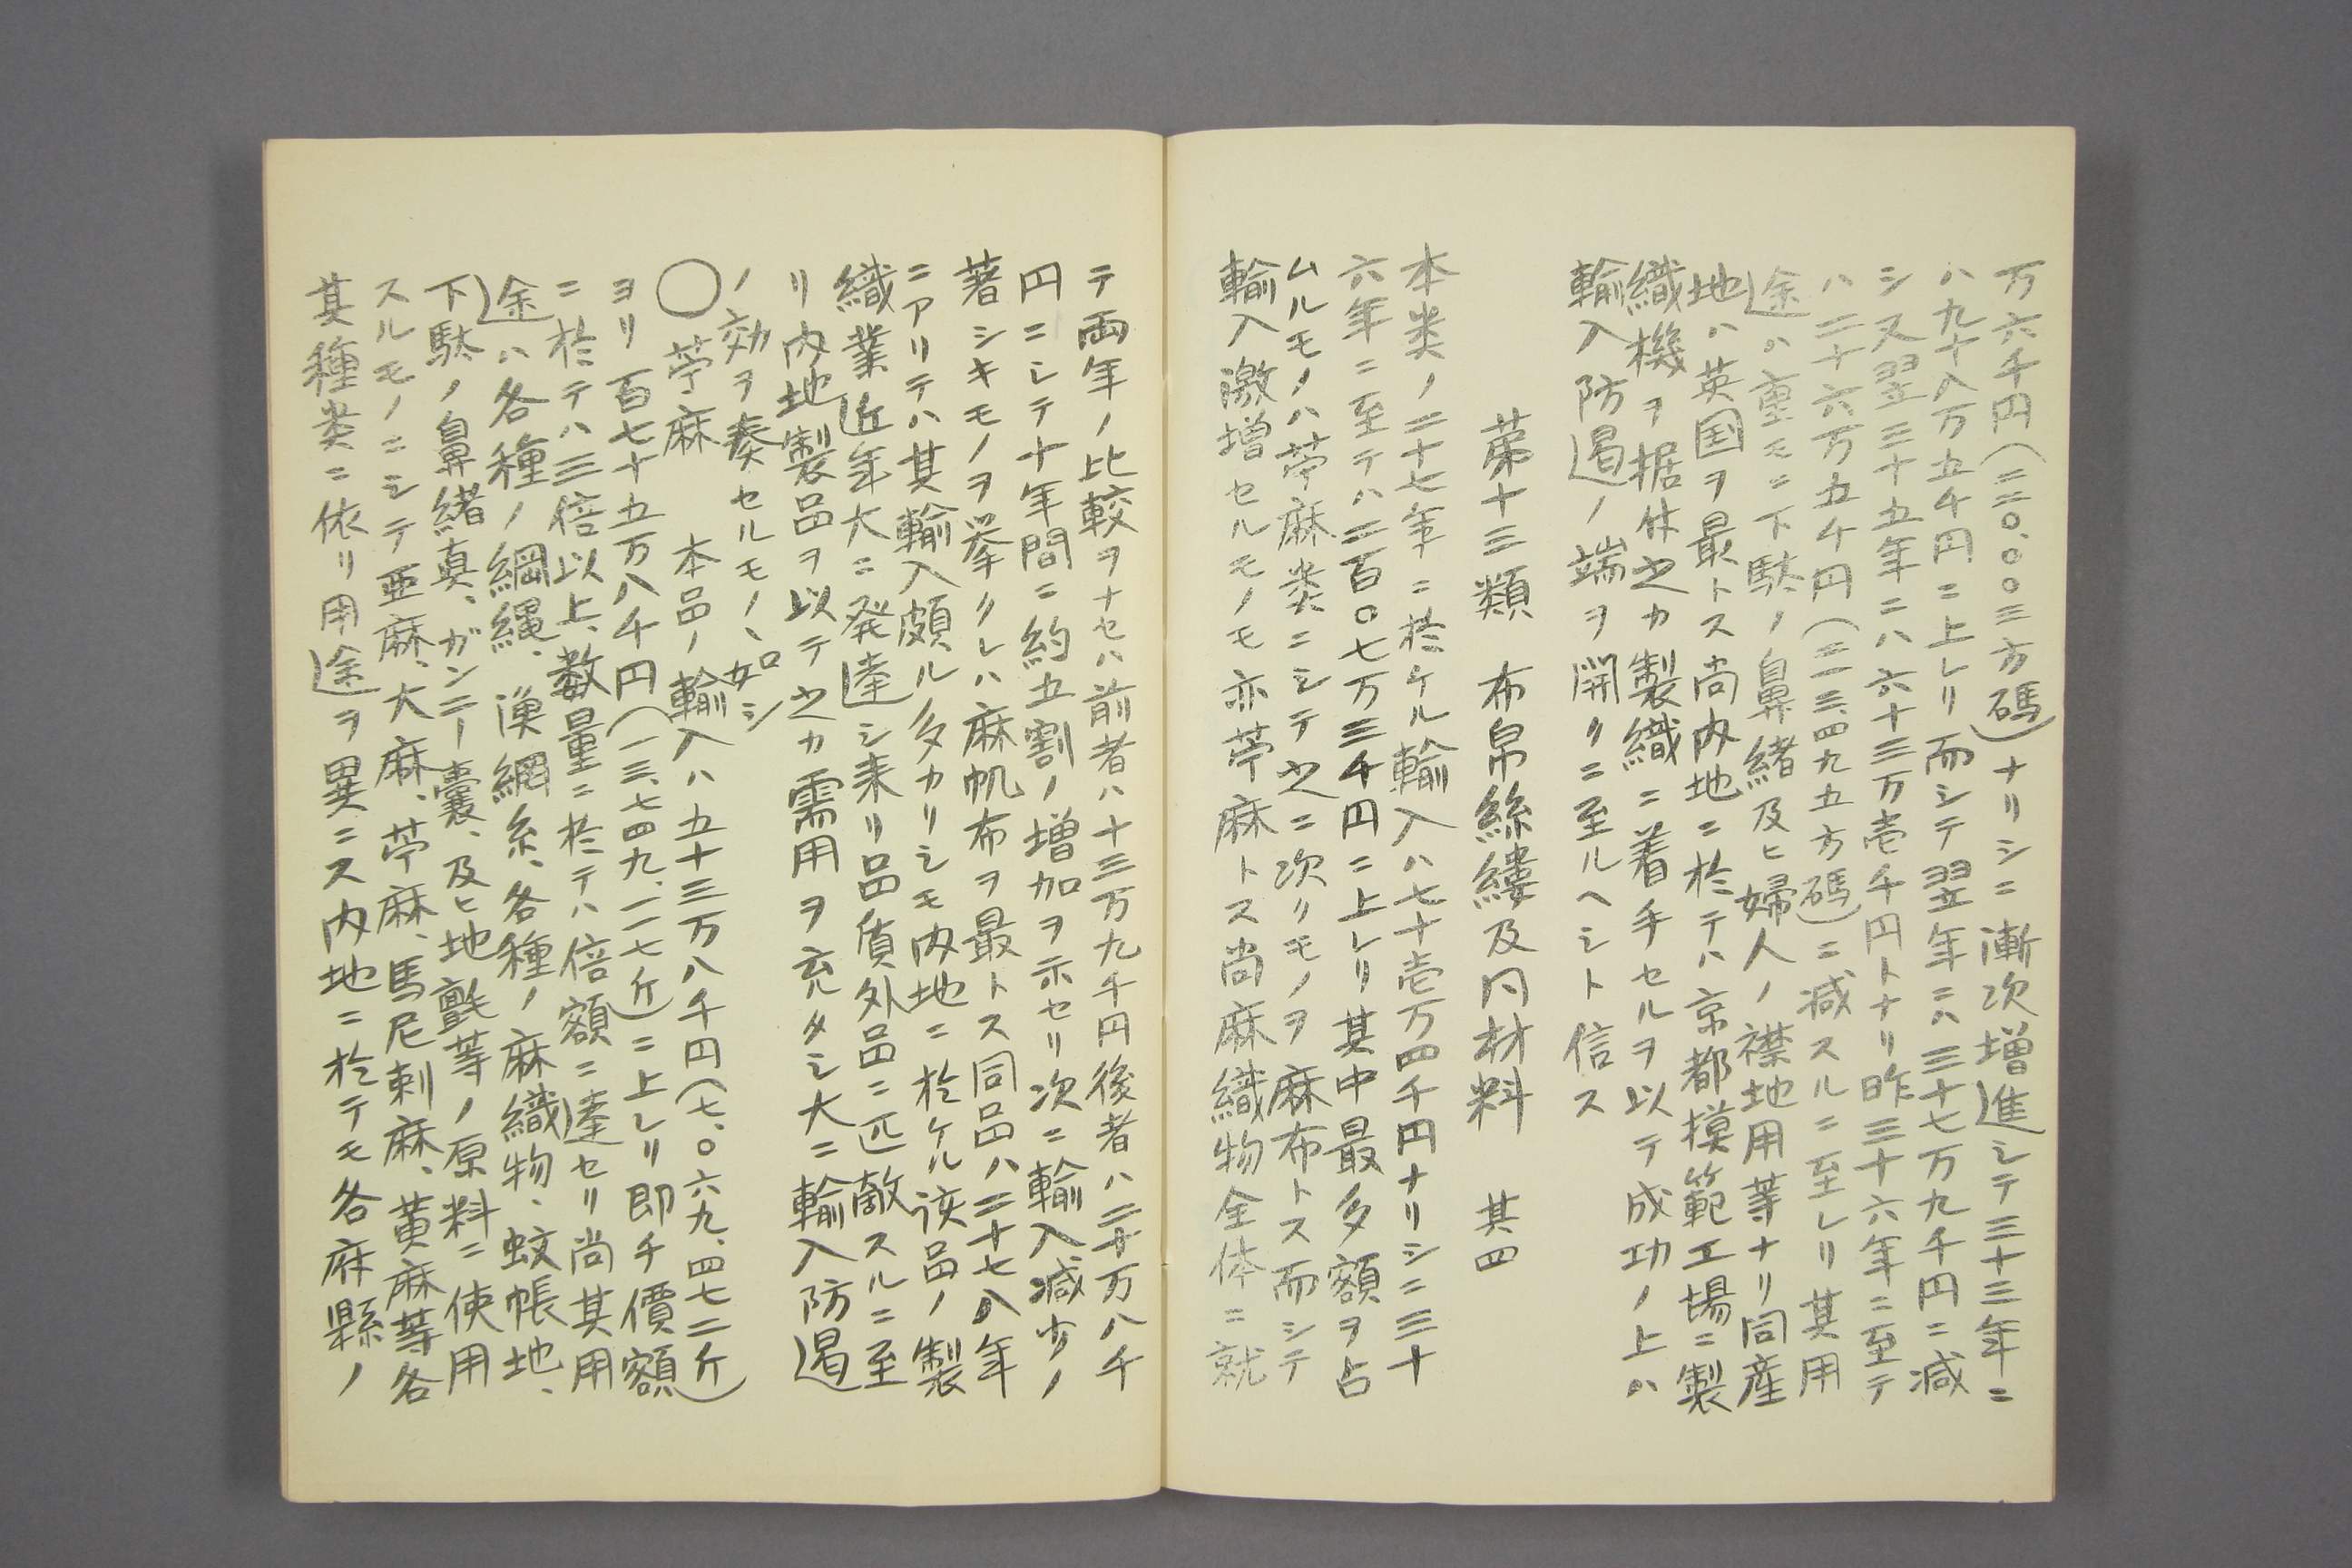 万六千円(二二〇、〇〇三方碼)ナリシニ漸次増進シテ三十三年ニ
ハ九十八万五千円ニ上レリ而シテ翌年ニハ三十七万九千円ニ減
シ又翌三十五年ニハ六十三万壱千円トナリ昨三十六年ニ至テ
ハ二十六万五千円(三一三、四九五方碼)ニ減スルニ至レリ其用
途ハ重モニ下駄ノ鼻緒及ヒ婦人ノ襟地用等ナリ同産
地ハ英国ヲ最トス尚内地ニ於テハ京都模範工場ニ製
織機ヲ据付之カ製織ニ着手セルヲ以テ成功ノ上ハ
輸入防遏ノ端ヲ開クニ至ルヘシト信ス
第十三類　布帛絲縷及同材料　其四
本类ノ二十七年ニ於ケル輸入ハ七十壱万四千円ナリシニ三十
六年ニ至テハ二百〇七万三千円ニ上レリ其中最多額ヲ占
ムルモノハ苧麻类ニシテ之ニ次クモノヲ麻布トス而シテ
輸入激増セルモノモ亦苧麻トス尚麻織物全体ニ就
テ両年ノ比較ヲナセハ前者ハ十三万九千円後者ハ二十万八千
円ニシテ十年間ニ約五割ノ増加ヲ示セリ次ニ輸入减少ノ
著シキモノヲ挙クレハ麻帆布ヲ最トス同品ハ二十七八年
ニアリテハ其輸入頗ル多カリシモ内地ニ於ケル該品ノ製
織業近年大ニ発達シ来リ品質外品ニ匹敵スルニ至
リ内地製品ヲ以テ之カ需用ヲ充タシ大ニ輸入防遏
ノ効ヲ奏セルモノヽ如シ
〇苧麻　本品ノ輸入ハ五十三万八千円(七、〇六九、四七二斤)
ヨリ百七十五万八千円(一三、七四九、一一七斤)ニ上レリ即チ價額
ニ於テハ三倍以上、数量ニ於テハ倍額ニ達セリ尚其用
途ハ各種ノ綱縄、漁網糸、各種ノ麻織物、蚊帳地、
下駄ノ鼻緒真、ガンニー嚢、及ヒ地氈等ノ原料ニ使用
スルモノニシテ亜麻、大麻、苧麻、馬尼剌麻、黄麻等各
其種类ニ依リ用途ヲ異ニス内地ニ於テモ各麻縣ノ